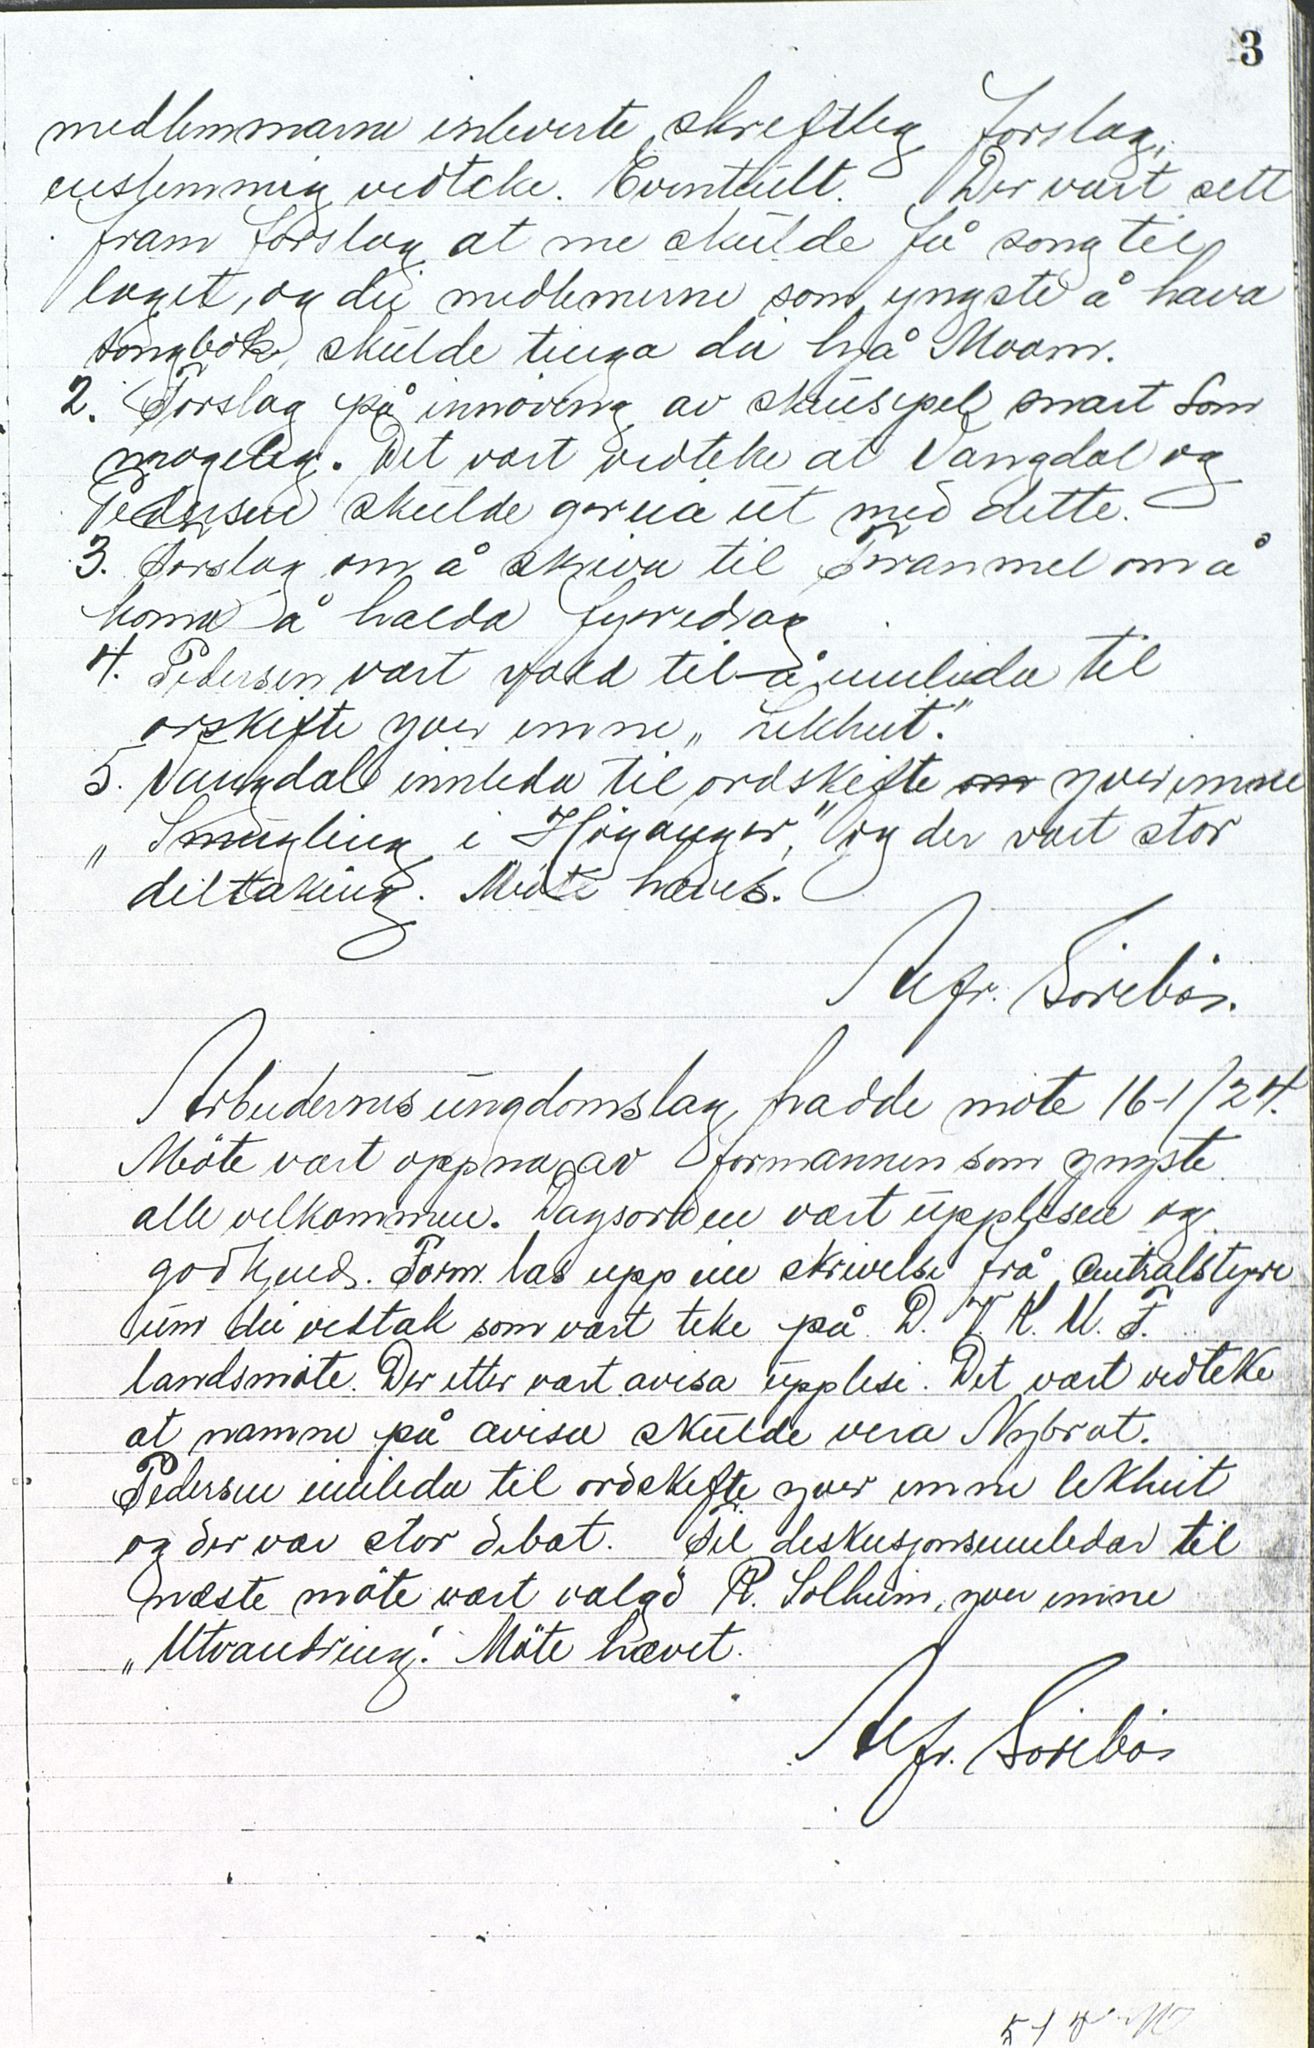 3
medlemmarne inleverte skreftleg forslag,
einstemmig vedteke. Eventuelt. Der vart sett
fram forslag at me skulde få song til
laget, og dei medlemerne som yngste å hava
songbok, skulde tinga dei hjå Moam.
2. Forslag på innöving av skuespel snart som
mogeleg. Det vart vedteke at Vangdal og
Pedersen skulde greia ut med dette.
3. Forslag om å skriva til Tranmel om å
koma å halda fyredrag
4. Pedersen vart vald til å innleda til
orskifte yver emne „Lekhut".
5. Vangdal innleda til ordskifte om yver emne
„Smugling i Höyanger," og der vart stor
deltaking. Möte hævet.
Alfr. Sörebö.
Arbeidernes ungdomslag hadde möte 16-1/24.
Möte vart oppna av formannen som yngste
alle velkommen. Dagsorden vart upplesen og
godkjend. Form. las upp ein skrivelse frå centralstyre
um dei vedtak som vart teke på D. V. K. U. F.
landsmöte. Der etter vart avisa upplesi. Det vart vedteke
at namne på avisa skulde vera Nybrot.
Pedersen innleda til ordskefte yver emne lekhut
og der var stor debat. Til deskusjonsinnledar til
næste möte vart valgd R. Solheim, yver emne
„Utvandring". Möte hævet.
Alfr. Sörebö